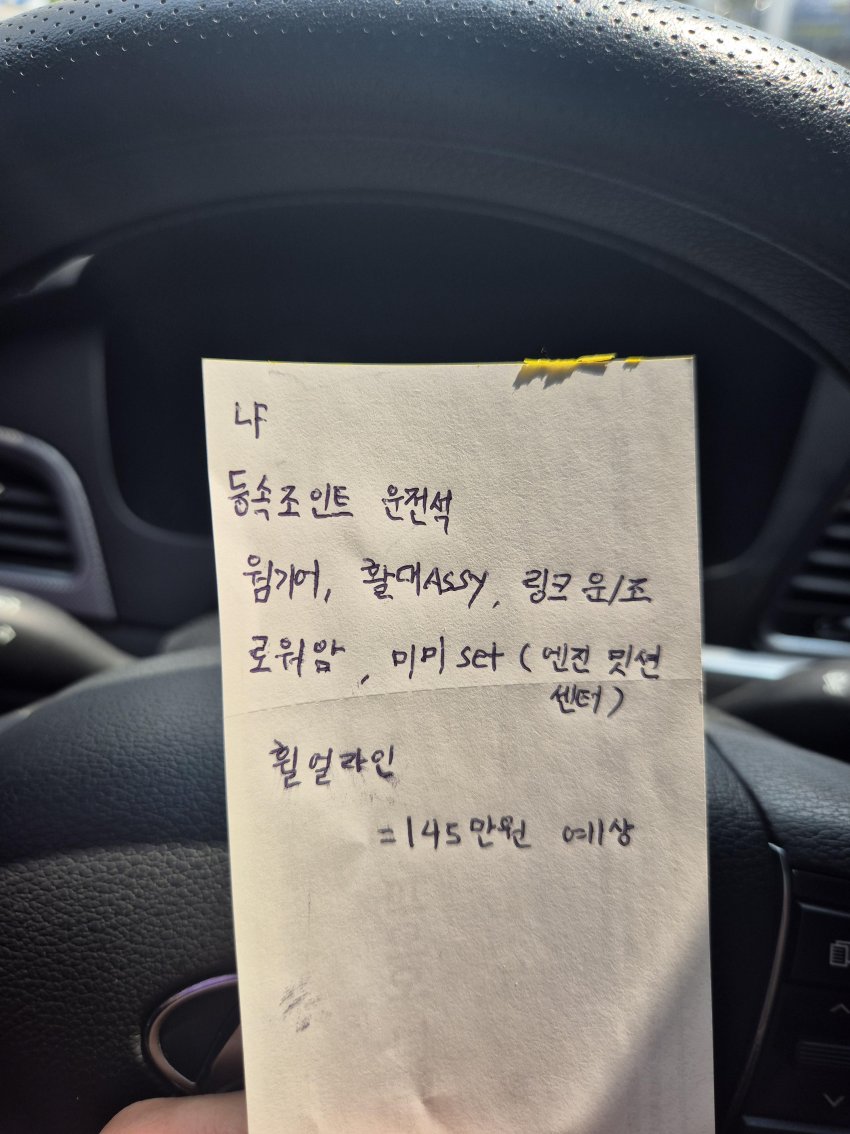 나
등속조인트 운전석
웜기어, 활대Assy, 링크 운/조
로워암, 미미 set ( 엔진 밋션
센터 )
휠얼라인
=145만원 예상